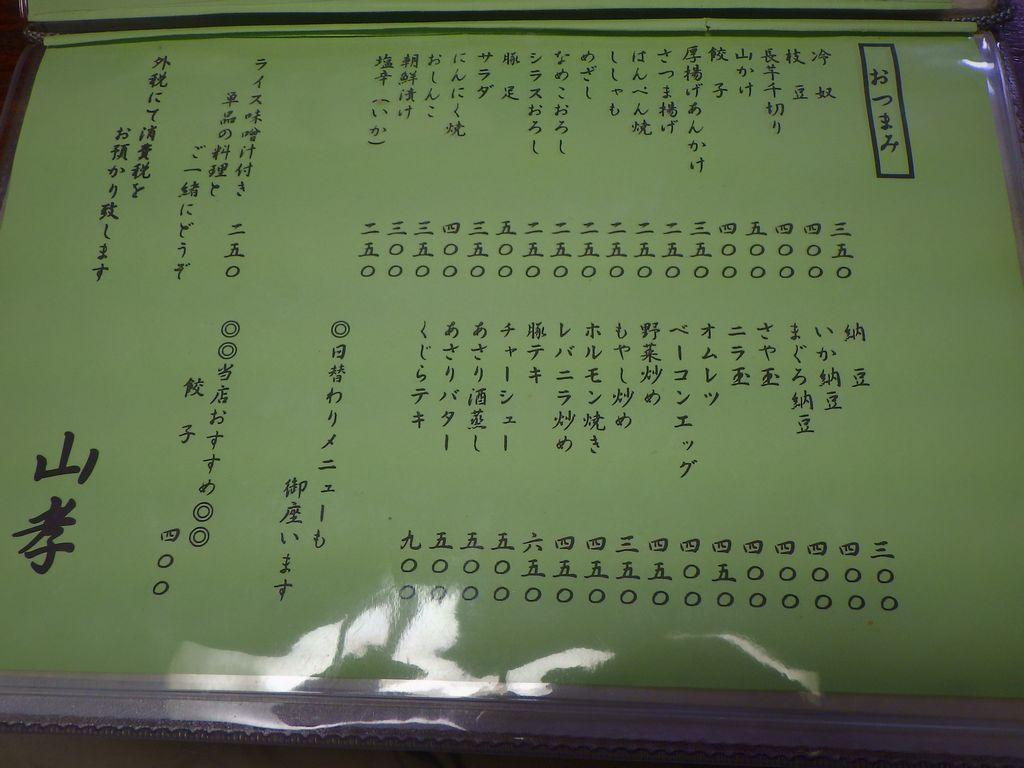 おつまみ
冷奴 三五〇
枝豆 四〇〇
長芋千切り 四〇〇
山かけ 五〇〇
餃子 四〇〇
厚揚げあんかけ 三五〇
さつま揚げ 二五〇
はんぺん焼 二五〇
ししゃも 二五〇
めざし 二五〇
なめこおろし 二五〇
シラスおろし 二五〇
豚足 五〇〇
サラダ 三五〇
にんにく焼 四〇〇
おしんこ 三五〇
朝鮮漬け 三〇〇
塩辛(いか) 二五〇
ライス味噌汁付き 二五〇
単品の料理と
ご一緒にどうぞ
外税にて消費税を
お預かり致します
納豆 三〇〇
いか納豆 四〇〇
まぐろ納豆 四〇〇
さや玉 四〇〇
ニラ玉 四〇〇
オムレツ 四五〇
ベーコンエッグ 四〇〇
野菜炒め 四五〇
もやし炒め 三五〇
ホルモン焼き 四五〇
レバニラ炒め 四五〇
豚テキ 六五〇
チャーシュー 五〇〇
あさり酒蒸し 五五〇
あさりバター 五五〇
くじらテキ 九〇〇
◎日替わりメニューも
御座います
◎◎当店おすすめ◎◎
餃子 四〇〇
山孝